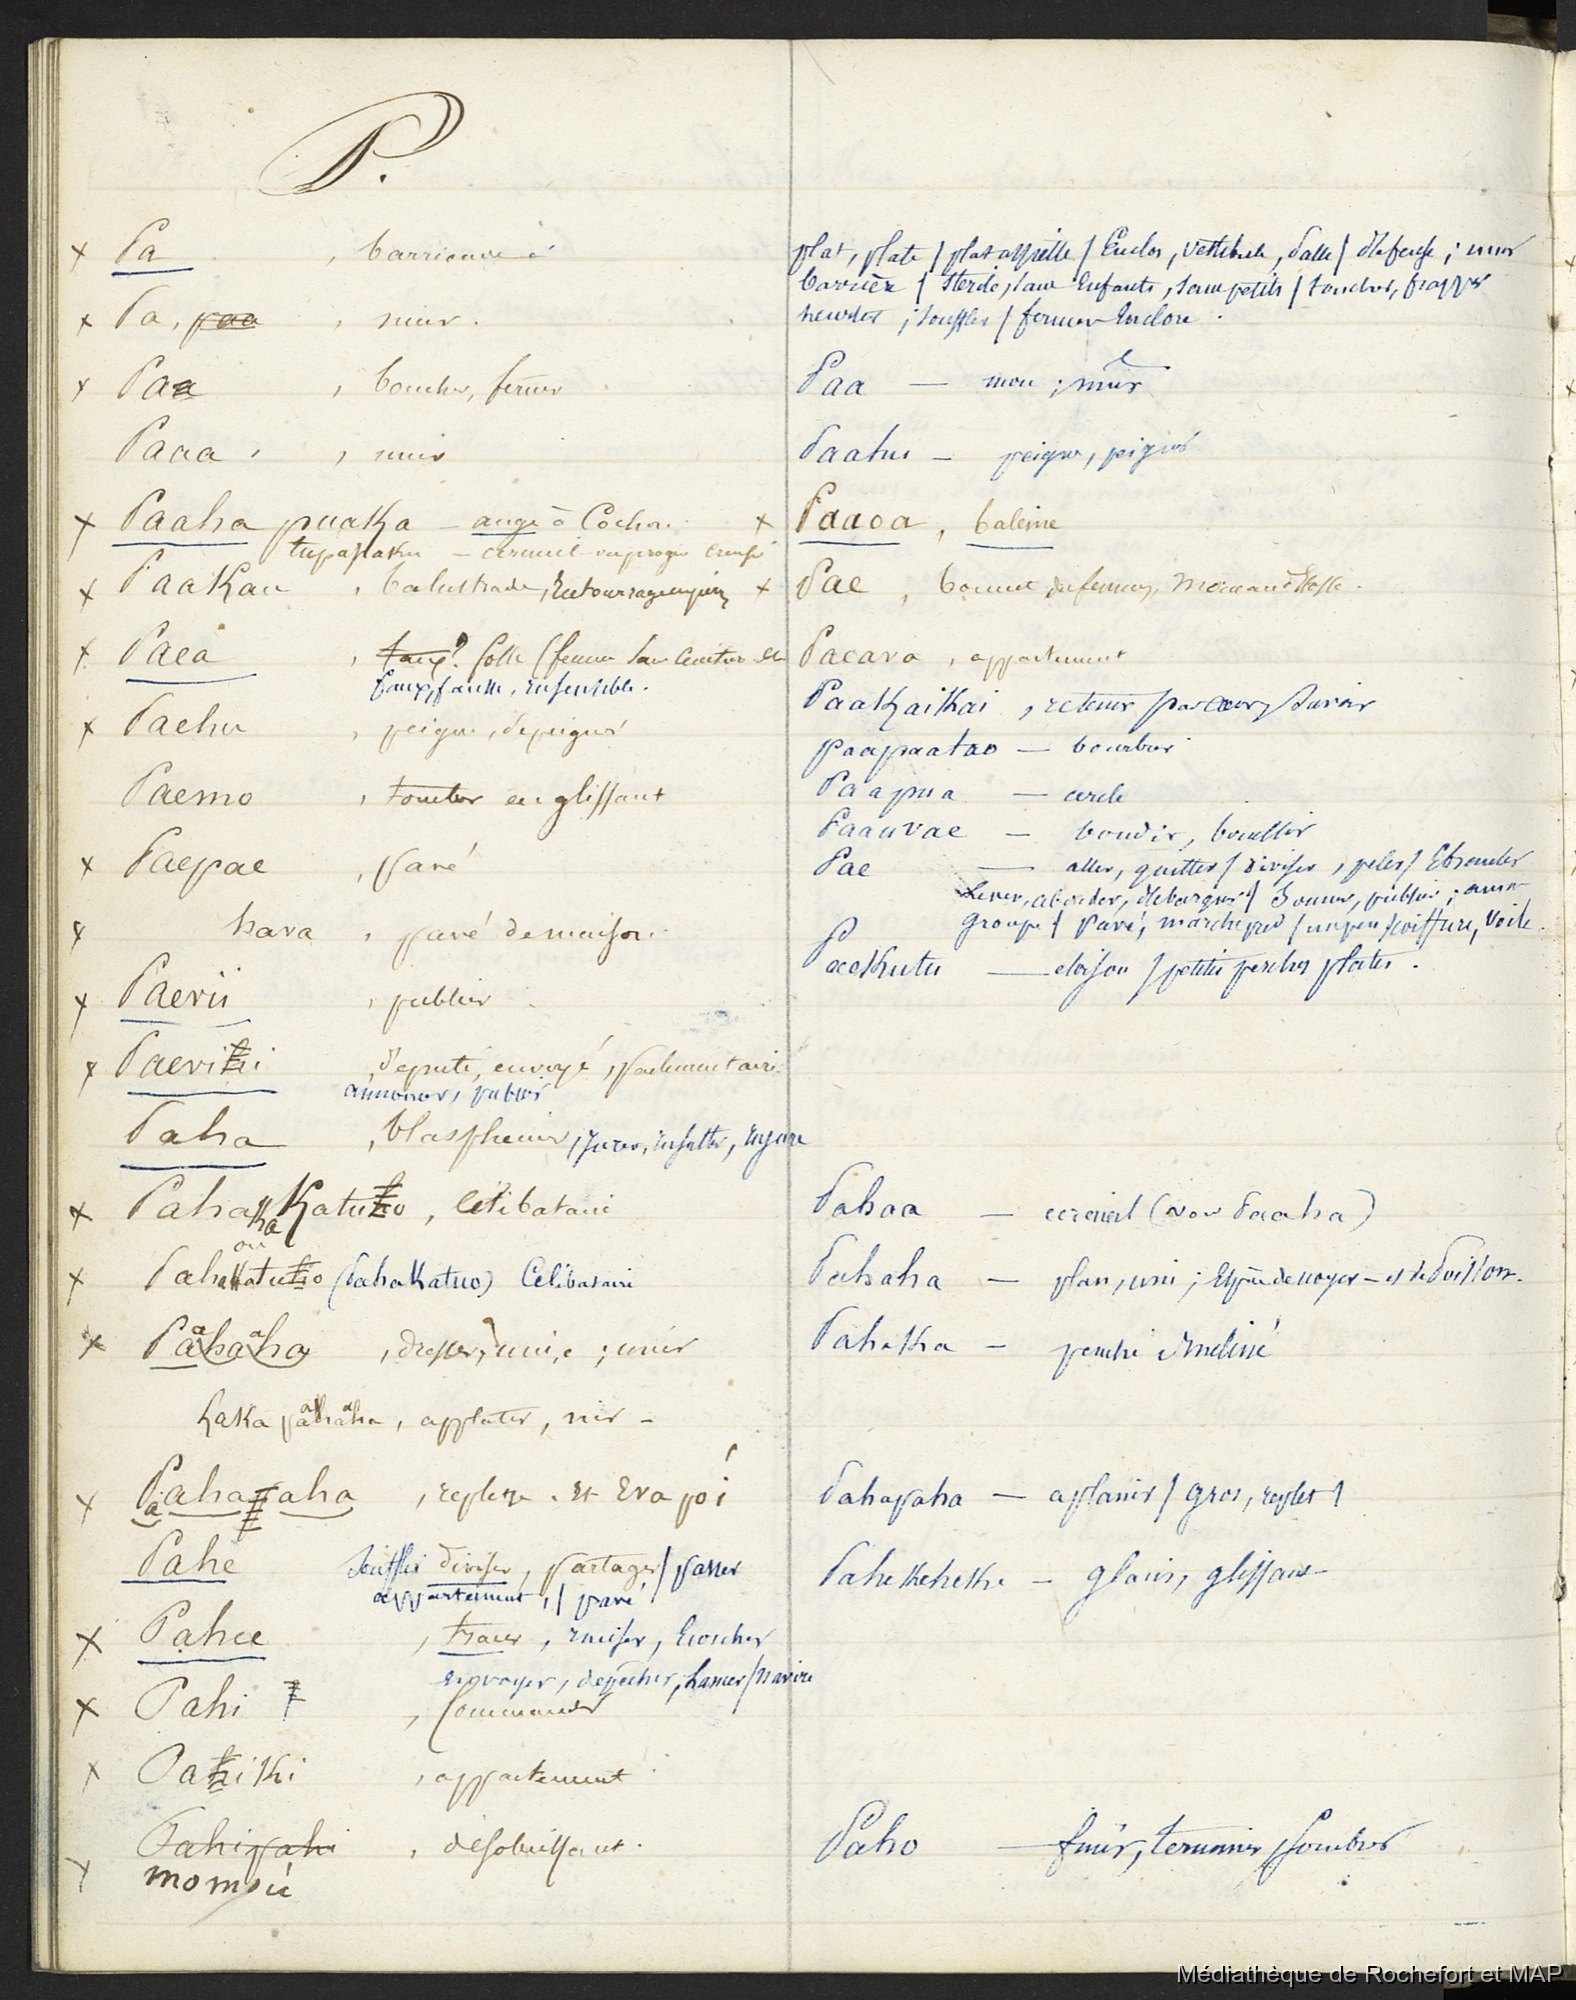 P.
x Pa , barricade
x Pa, paa , mur.
x Paa , boucher, fermer
Paaa , mur
x Paaha puaka – auge à Cochon
tupapaku – cercueil ou pirogue creusé
x Paakau , balustrade, Entourrage
x Paea , faux? folle (femme sans
faux, fausse, insensible.
x Paehu , peigne, de peigner
Paemo , tomber en glissant
x Paepae , pavé
x hava , pavé de maison.
x Paevii , publier
x Paevihi , député, envoyé, parlementaire
annoncer, publier
Paha , blasphemer, jurer, insulter, injure
x Pahakahakatuho , Célibataire
ou
x Pahakatuho (Pahakatuo) Célibataire
x Paahaaha , dresser, uni, e ; unir
haka paahaaha , applatir, nir –
x Pahapaha , replete . et Eva poi
Pahe souffler diviser, partager / passer
appartement, / pavé
x Pahee , tracer, inciser, Ecorcher
envoyer, depêcher, lancer / navire
x Pahi , Commander
x Pahiki , appartement
x Pahipahi , désobéissant.
momoii
plat, plate / plat assiette / Enclos, vestibule, dalle / défense ; mur
barrière / Sterile, sans Enfants, sans petits / toucher, frapper
heurter ; souffler / fermer Enclore .
Paa — mou ; mûr
Paahu — peigne, peigner
x Paaoa , baleine
x Pae , bonnet de femmes, Morceau d'étoffe.
Paeava , appartement
Paakaikai , retenir par coeur, savoir
paapaatao — bourbier
Paapua — cercle
Paauvae — bondir, bouillir
Pae — aller, quitter / diviser , peler / Ebrancher
Lever, aborder, debarquer / Donner, publier ;
groupe / Pavé, marchepied / un peu / coiffure, Voile.
Paekutu — cloison / petites perches plates .
Pahaa — cercueil (non Paaha)
Pahaha — plan, uni ; Espèce de noyer – et de Poisson.
Pahaka — penché Incliné
Pahapaha — aplanir / gros, replet /
Pahekeheke — glacis, glissant
Paho — finir, terminer, sombrer
Médiathèque de Rochefort et MAP